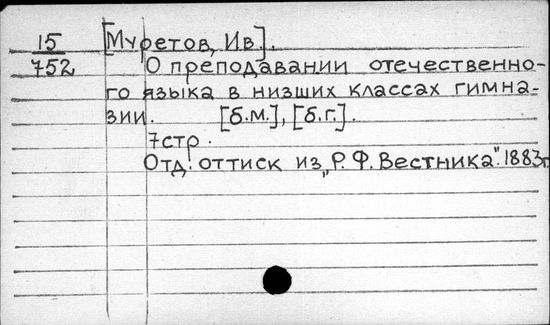 15
752
[Муретов, Ив].
О преподавании отечественно-
го языка в низших классах гимна-
зии. [б.м.], [б.г.].
7стр.
Отд. оттиск из „Р. Ф. Вестника". 1883г.